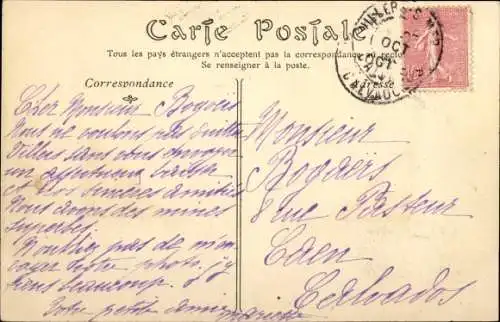 Carte Postale
Tous les pays étrangers n'acceptent pas la correspondance au recto.
Se renseigner à la poste.
Correspondance
Adresse
VILLERS S MER
OCT
CALVADOS
Cher Monsieur Bogaers
Nous ne voulons pas quitter
Villers sans vous envoyer
un affectueux baiser
et nos sincères amitiés
Nous avons des mines
superbes
N'oubliez pas de m'en
voyer votre photo. j'y
tiens beaucoup.
Votre petite amie
Monsieur
Bogaers
8 rue Pasteur
Caen
Calvados